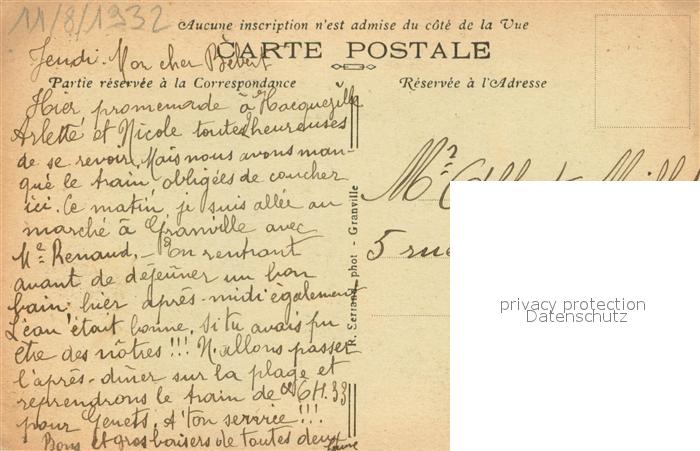 11/8/1932
Aucune inscription n'est admise du côté de la Vue
CARTE POSTALE
Jeudi. Mon cher Bébert
Partie réservée à la Correspondance
Réservée à l'Adresse
Hier, promenade à Hacqueville
Arlette et Nicole toutes heureuses
de se revoir. Mais nous avons man-
qué le train, obligées de coucher
ici. Ce matin, je suis allée au
marché à Granville avec
Me Renaud. - En rentrant
avant de déjeûner un bon
bain; hier après-midi également
L'eau était bonne. Si tu avais pu
être des nôtres !!! N. allons passer
l'après-dîner sur la plage et
reprendrons le train de 6H.33
pour Genets. A ton service !!!
Bons et gros baisers de toutes deux
Mr Albert
5 rue
R. Serrand, phot - Granville
privacy protection
Datenschutz